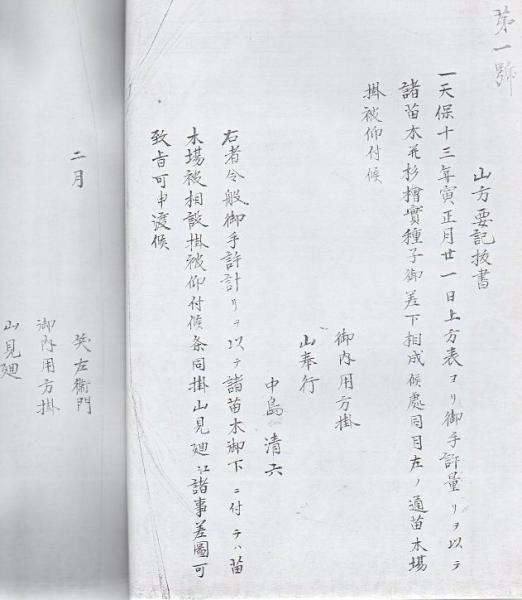 第一號
山方要記抜書
一天保十三年寅正月廿一日上方表ヨリ御手許量リヲ以テ
諸苗木並杉檜實種子御差下相成候處同月左ノ通苗木場
掛被仰付候
御内用方掛
山奉行
中島清六
右者今般御手許計リヲ以テ諸苗木御下ニ付テハ苗
木場被相設掛被仰付候条同掛山見廻江諸事差圖可
致旨可申渡候
二月
左衞門
御内用方掛
山見廻